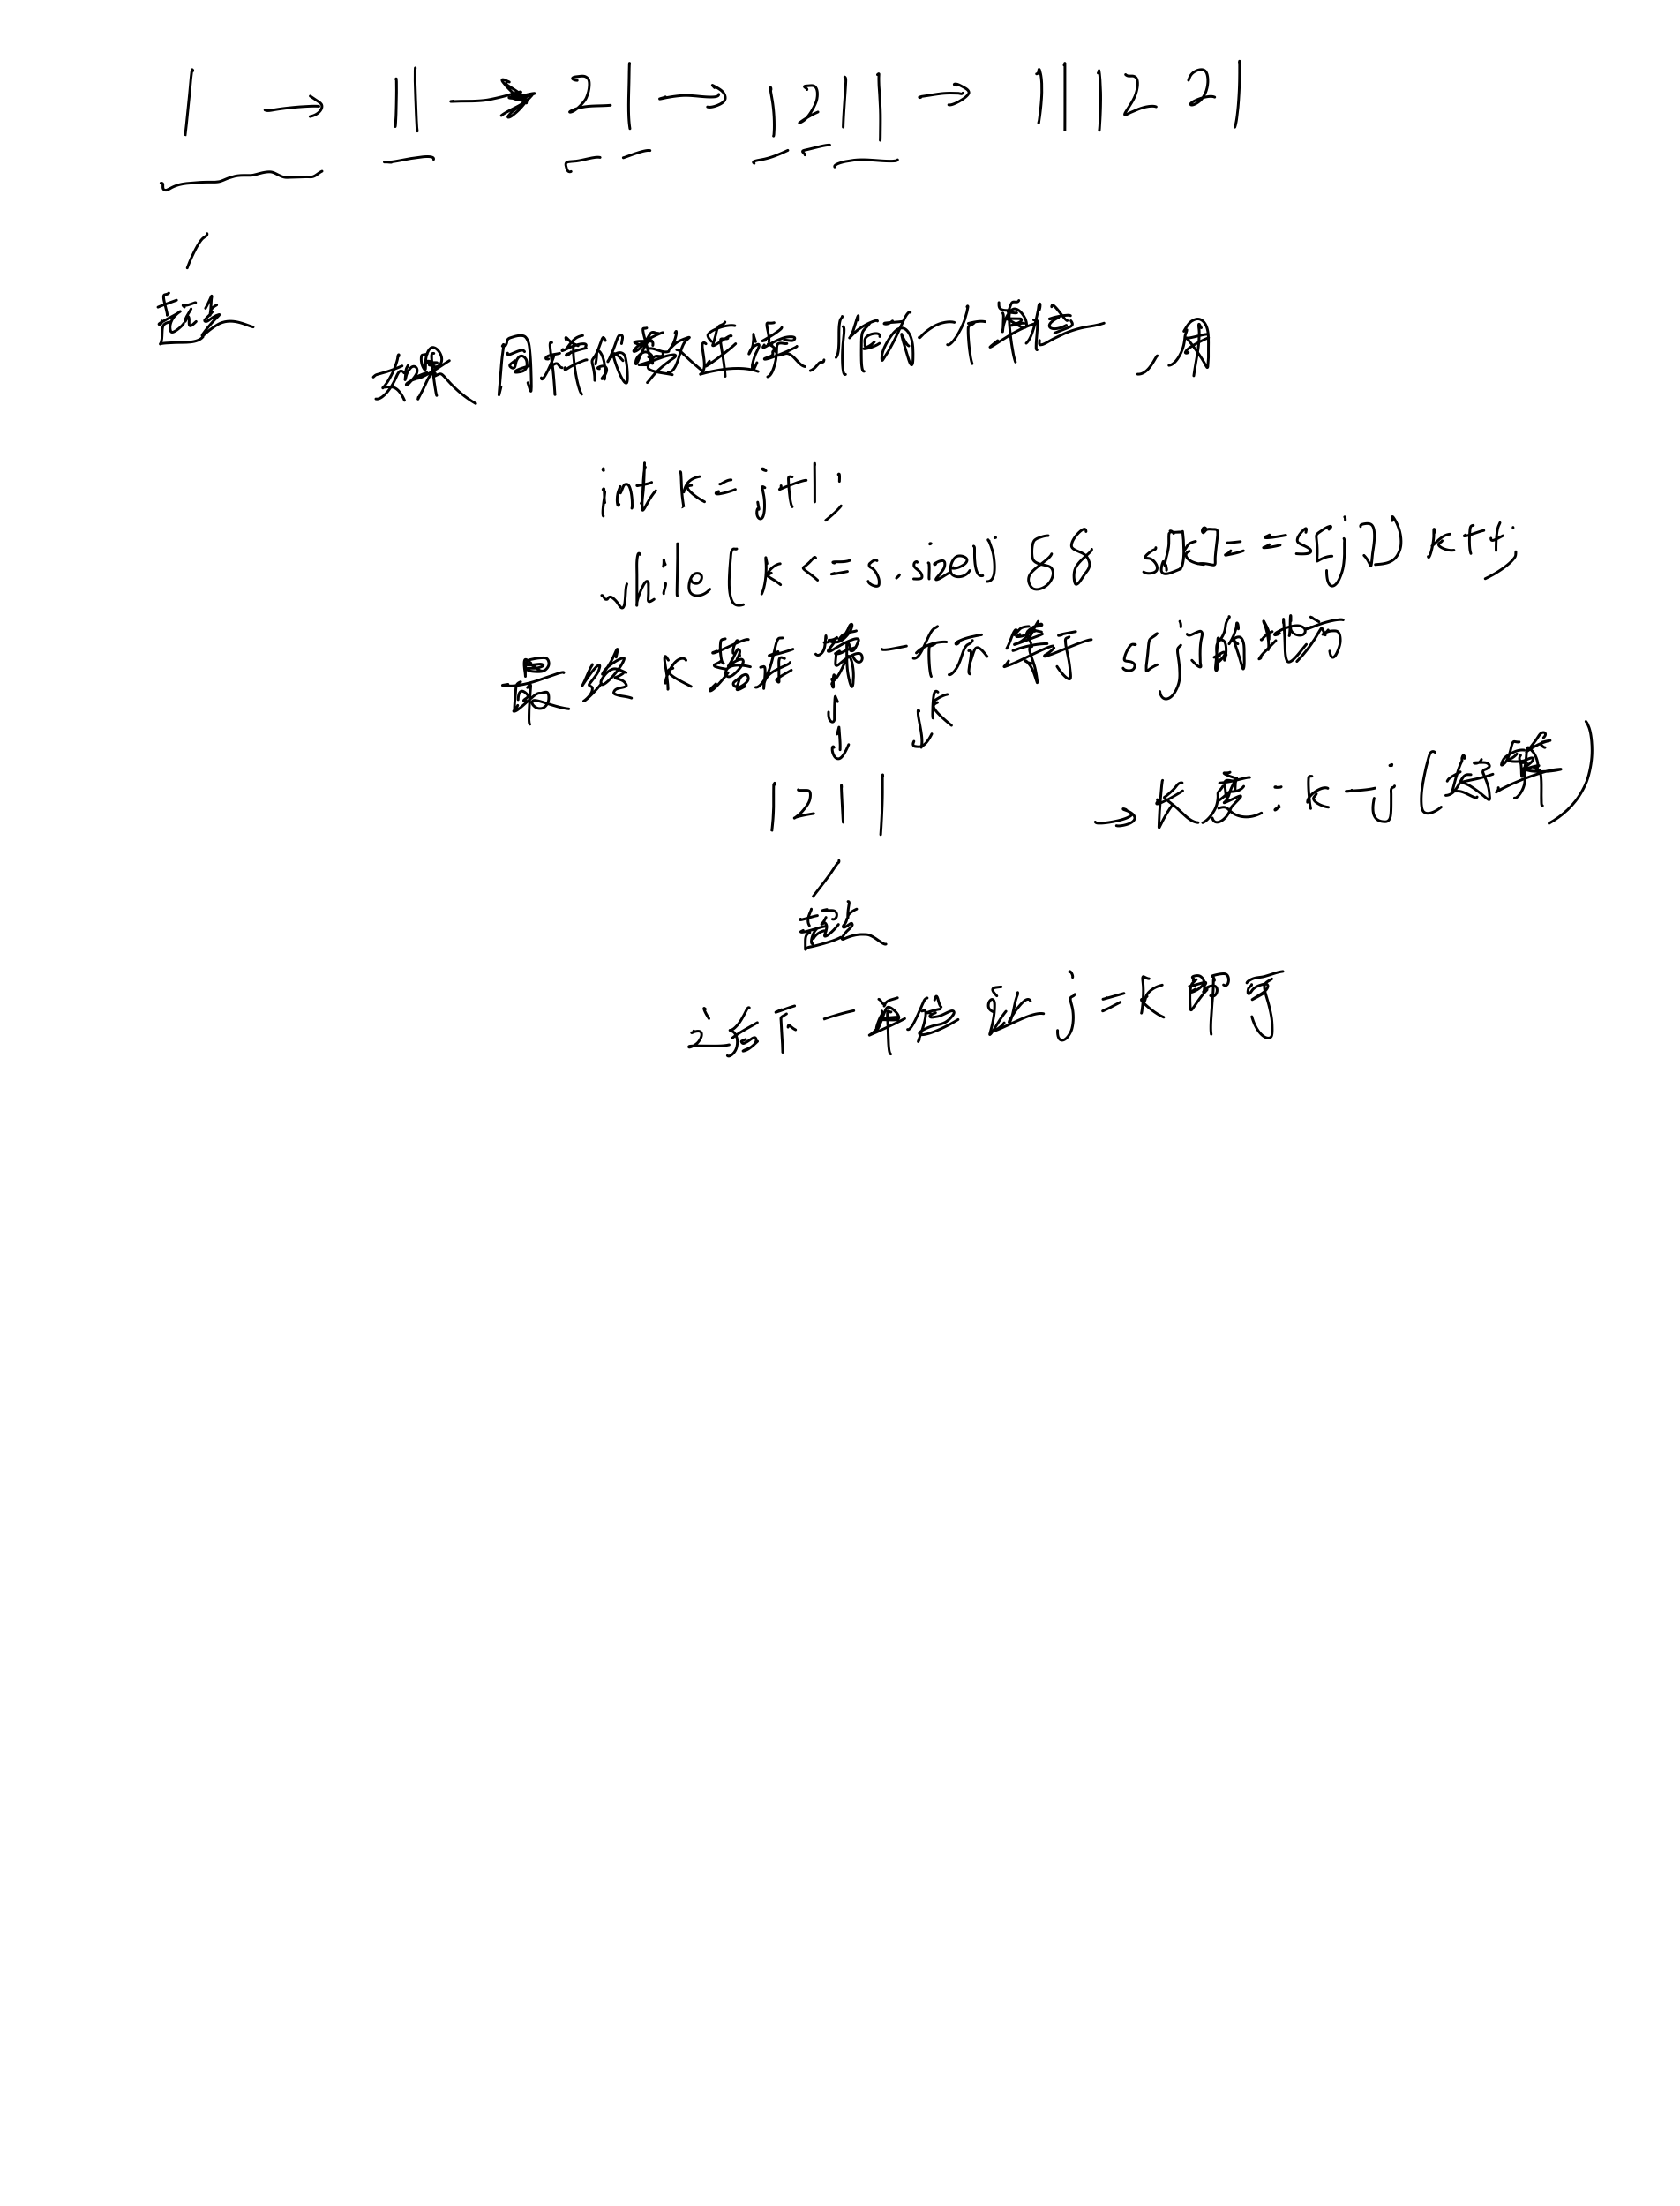 1 → 11 → 21 → 1211 → 111221
起点
如果同样的数连续,作为一个单位,用
int k=j+1;
while(k<=s.size() && s[k]==s[j]) k++;
最终k落在第一个不等于s[j]的地方
j k
1211 → 长度:k-j(好算)
起点
这样下一单位让j=k即可